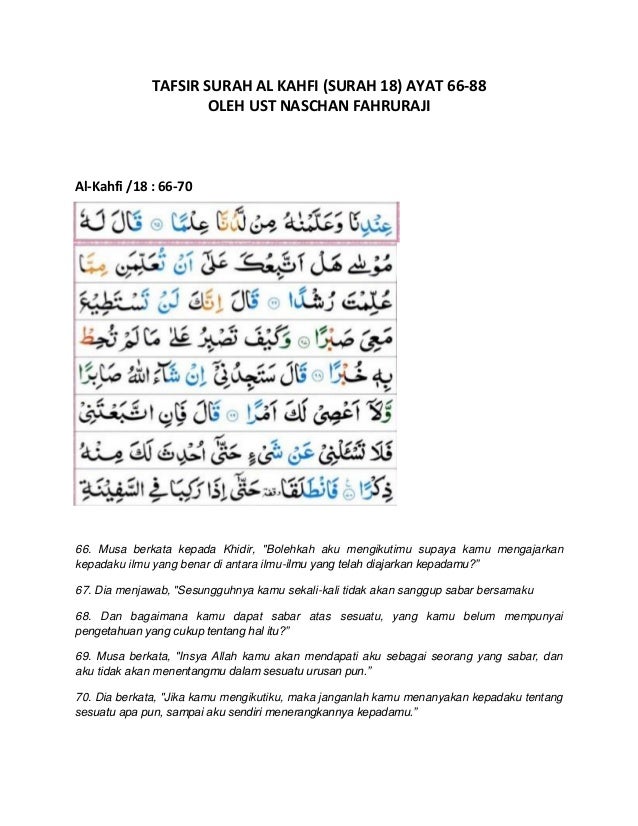 TAFSIR SURAH AL KAHFI (SURAH 18) AYAT 66-88
OLEH UST NASCHAN FAHRURAJI
Al-Kahfi /18 : 66-70
عِنْدِنَا وَعَلَّمْنٰهُ مِنْ لَّدُنَّا عِلْمًا ۝٦٥ قَالَ لَهٗ
مُوْسٰى هَلْ اَتَّبِعُكَ عَلٰٓى اَنْ تُعَلِّمَنِ مِمَّا
عُلِّمْتَ رُشْدًا ۝٦٦ قَالَ اِنَّكَ لَنْ تَسْتَطِيْعَ
مَعِيَ صَبْرًا ۝٦٧ وَكَيْفَ تَصْبِرُ عَلٰى مَا لَمْ تُحِطْ
بِهٖ خُبْرًا ۝٦٨ قَالَ سَتَجِدُنِيْٓ اِنْ شَآءَ اللّٰهُ صَابِرًا
وَّلَآ اَعْصِيْ لَكَ اَمْرًا ۝٦٩ قَالَ فَاِنِ اتَّبَعْتَنِيْ
فَلَا تَسْـَٔلْنِيْ عَنْ شَيْءٍ حَتّٰٓى اُحْدِثَ لَكَ مِنْهُ
ذِكْرًا ۝٧٠ فَانْطَلَقَا ۗ حَتّٰٓى اِذَا رَكِبَا فِى السَّفِيْنَةِ
66. Musa berkata kepada Khidir, "Bolehkah aku mengikutimu supaya kamu mengajarkan
kepadaku ilmu yang benar di antara ilmu-ilmu yang telah diajarkan kepadamu?"
67. Dia menjawab, "Sesungguhnya kamu sekali-kali tidak akan sanggup sabar bersamaku
68. Dan bagaimana kamu dapat sabar atas sesuatu, yang kamu belum mempunyai
pengetahuan yang cukup tentang hal itu?"
69. Musa berkata, "Insya Allah kamu akan mendapati aku sebagai seorang yang sabar, dan
aku tidak akan menentangmu dalam sesuatu urusan pun."
70. Dia berkata, "Jika kamu mengikutiku, maka janganlah kamu menanyakan kepadaku tentang
sesuatu apa pun, sampai aku sendiri menerangkannya kepadamu."